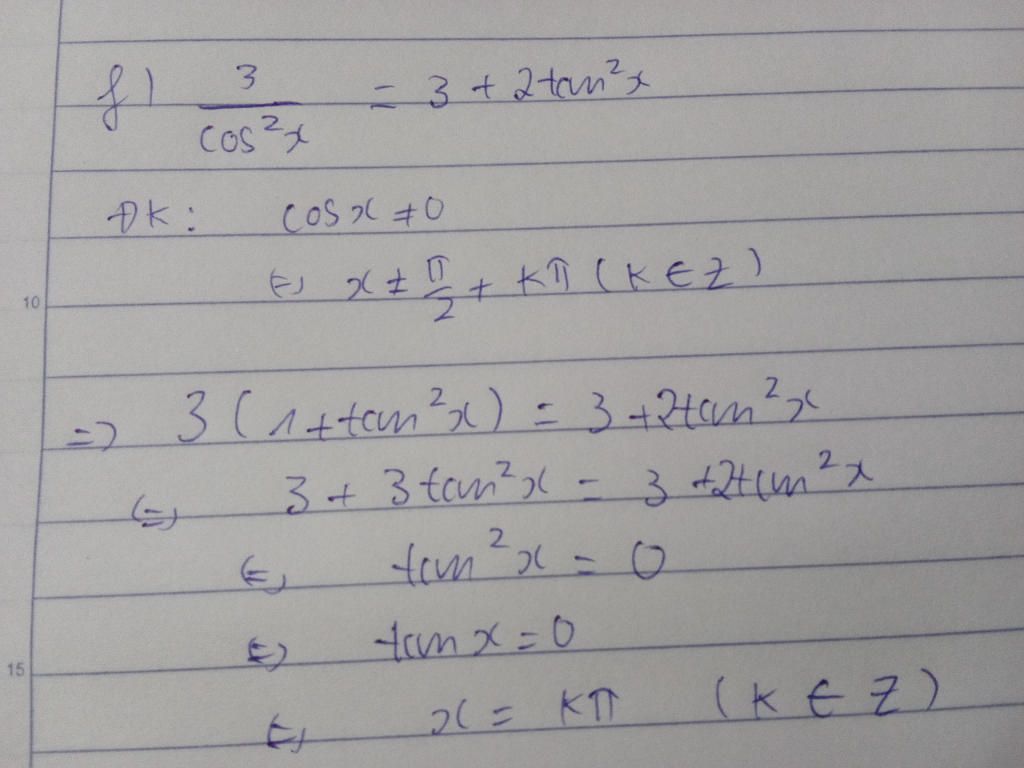 f) 3/cos²x = 3 + 2tan²x
ĐK: cosx ≠ 0
⇔ x ≠ π/2 + kπ (k ∈ Z)
10
=> 3(1+tan²x) = 3+2tan²x
⇔ 3 + 3tan²x = 3+2tan²x
⇔ tan²x = 0
⇔ tanx = 0
15
⇔ x = kπ (k ∈ Z)